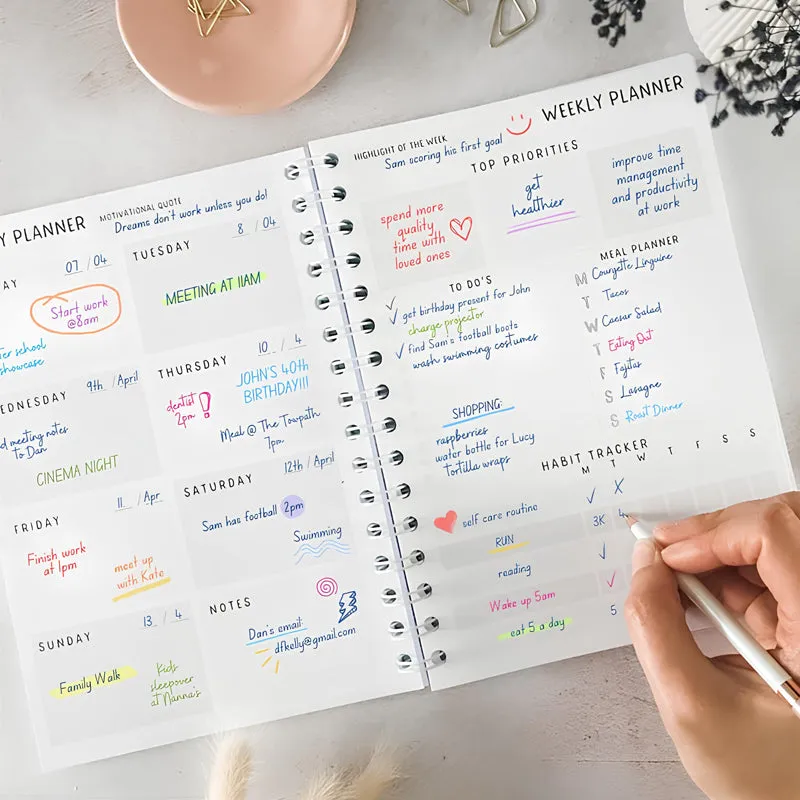 Y PLANNER
MOTIVATIONAL QUOTE
Dreams don't work unless you do!
AY
07 / 04
Start work
@8am
er school
showcase
TUESDAY
8 / 04
MEETING AT 11AM
EDNESDAY
9th / April
d meeting notes
to Dan
CINEMA NIGHT
THURSDAY
10 / 4
dentist
2pm !
JOHN'S 40th
BIRTHDAY!!!
Meal @ The Towpath
7pm
FRIDAY
11 / Apr
Finish work
at 1pm
meet up
with Kate
SATURDAY
12th / April
Sam has football 2pm
Swimming
SUNDAY
13 / 4
Family Walk
Kids
sleepover
at Nanna's
NOTES
Dan's email:
dfkelly@gmail.com
WEEKLY PLANNER
HIGHLIGHT OF THE WEEK
Sam scoring his first goal
TOP PRIORITIES
spend more
quality
time with
loved ones
get
healthier
improve time
management
and productivity
at work
TO DO'S
✓ get birthday present for John
change projector
✓ find Sam's football boots
wash swimming costumes
SHOPPING:
raspberries
water bottle for Lucy
tortilla wraps
MEAL PLANNER
M Courgette Linguine
T Tacos
W Caesar Salad
T Eating Out
F Fajitas
S Lasagne
S Roast Dinner
HABIT TRACKER
M T W T F S S
self care routine ✓ X
RUN 3K 4
reading ✓
Wake up 5am ✓
eat 5 a day 5